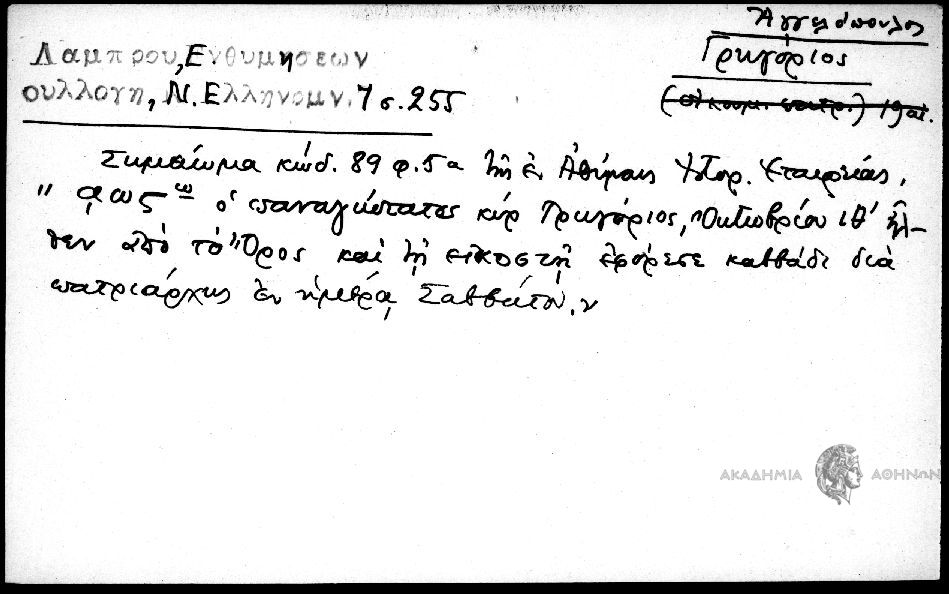 Ἀγγελόπουλος
Γρηγόριος
(οἰκουμ. πατρ.) 19 αἰ.
Λαμπρου, Ενθυμησεων
συλλογη, Ν. Ελληνομν. 7 σ. 255
Σημείωμα κώδ. 89 φ. 5α τῆς ἐν Ἀθήναις Ἱστορ. Ἑταιρείας,
" αως ω ὁ παναγιώτατος κύρ Γρηγόριος, Ὀκτωβρίου ιθ' ἦλ-
θεν ἀπό τό Ὄρος καί τῇ εἰκοστῇ ἐφόρεσε καββάδι διά
πατριάρχης ἐν ἡμέρᾳ Σαββάτου. "
ΑΚΑΔΗΜΙΑ ΑΘΗΝΩΝ